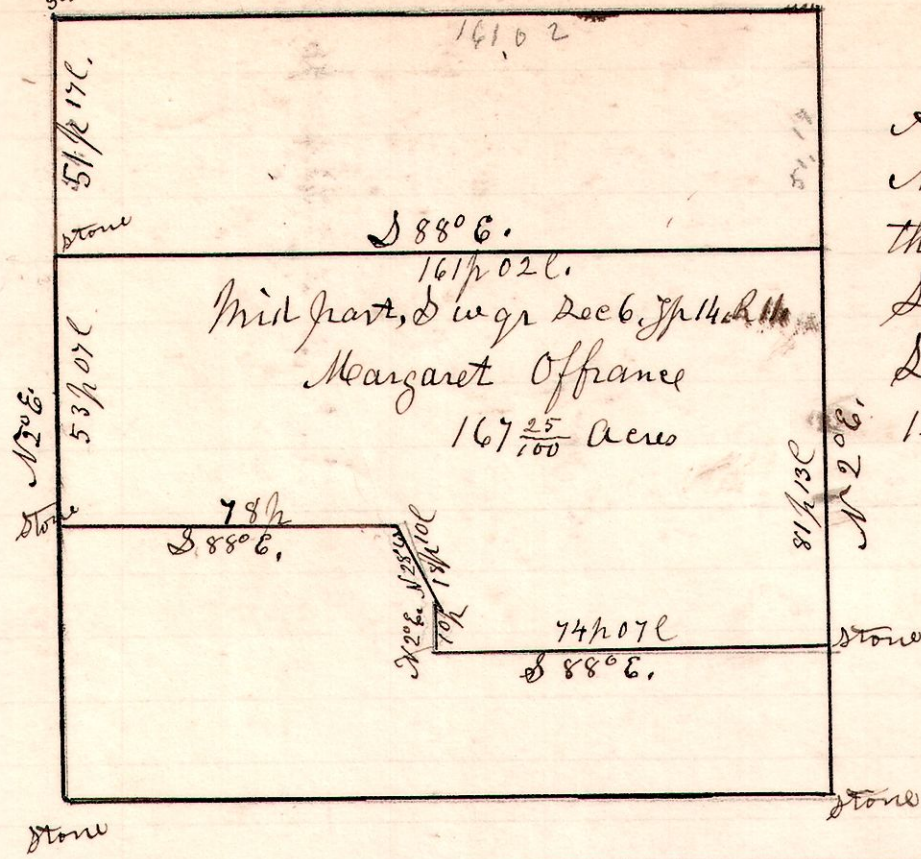 161 0 2
51p 17l.
51, 17
stone
S 88° E.
161p 02l.
Mid part, S w qr Sec 6, Tp 14, R 11
Margaret Offrance
167 25/100 Acres
N 2° E.
53p 07l
81p 13l
N 2° E.
Stone
78p
S 88° E.
N 28° W
18p 10l
N 2° E.
10p
74p 07l
S 88° E.
Stone
Stone
Stone